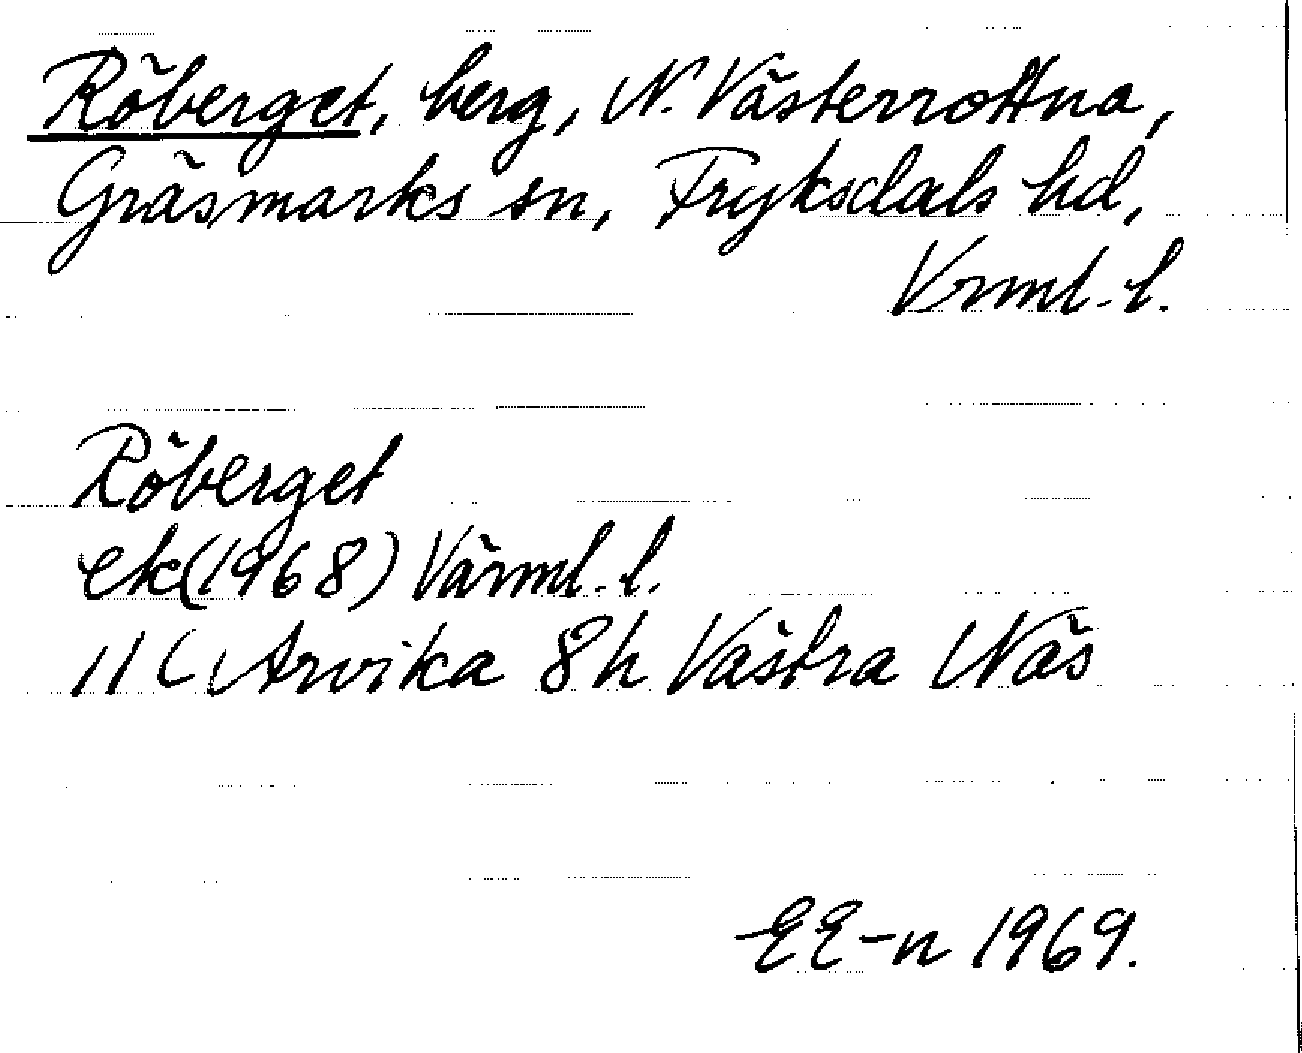 Röberget, berg, N. Västerrottna,
Gräsmarks sn, Fryksdals hd,
Vrml. l.
Röberget
ek (1968) Värml. l.
11 C Arvika 8h Västra Näs
EE-n 1969.